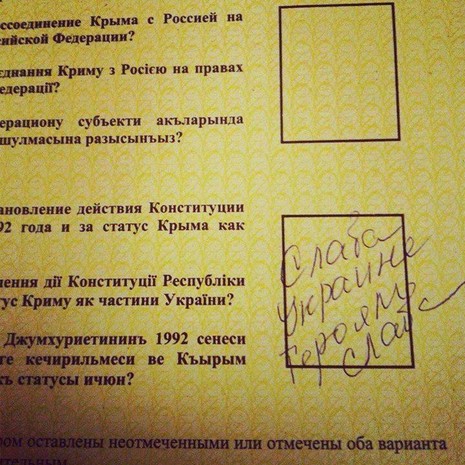 ссоединение Крыма с Россией на
сийской Федерации?
єднання Криму з Росією на правах
едерації?
ерациону субъекти акъларында
шулмасына разысынъыз?
ановление действия Конституции
92 года и за статус Крыма как
ення дії Конституції Республіки
тус Криму як частини України?
Джумхуриетининъ 1992 сенеси
ге кечирильмеси ве Къырым
къ статусы ичюн?
Слава
Украине
Героям
Слава
ом оставлены неотмеченными или отмечены оба варианта